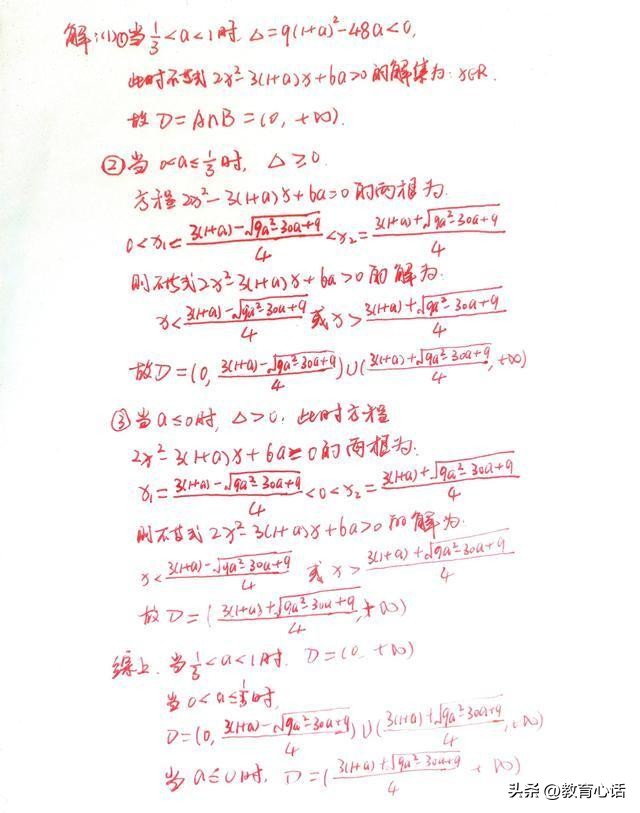 解:(1)①当1/3<a<1时,Δ=9(1+a)²-48a<0,
此时不等式2x²-3(1+a)x+6a>0的解集为:x∈R.
故D=A∩B=(0,+∞).
②当0<a≤1/3时,Δ≥0.
方程2x²-3(1+a)x+6a=0的两根为:
0<x₁=(3(1+a)-√(9a²-30a+9))/4<x₂=(3(1+a)+√(9a²-30a+9))/4
则不等式2x²-3(1+a)x+6a>0的解为:
x<(3(1+a)-√(9a²-30a+9))/4或x>(3(1+a)+√(9a²-30a+9))/4
故D=(0,(3(1+a)-√(9a²-30a+9))/4)∪((3(1+a)+√(9a²-30a+9))/4,+∞)
③当a≤0时,Δ>0.此时方程
2x²-3(1+a)x+6a=0的两根为:
x₁=(3(1+a)-√(9a²-30a+9))/4<0<x₂=(3(1+a)+√(9a²-30a+9))/4
则不等式2x²-3(1+a)x+6a>0的解为:
x<(3(1+a)-√(9a²-30a+9))/4或x>(3(1+a)+√(9a²-30a+9))/4
故D=((3(1+a)+√(9a²-30a+9))/4,+∞)
综上.当1/3<a<1时.D=(0,+∞)
当0<a≤1/3时,
D=(0,(3(1+a)-√(9a²-30a+9))/4)∪((3(1+a)+√(9a²-30a+9))/4,+∞)
当a≤0时,D=((3(1+a)+√(9a²-30a+9))/4 +∞)
头条 @教育心话